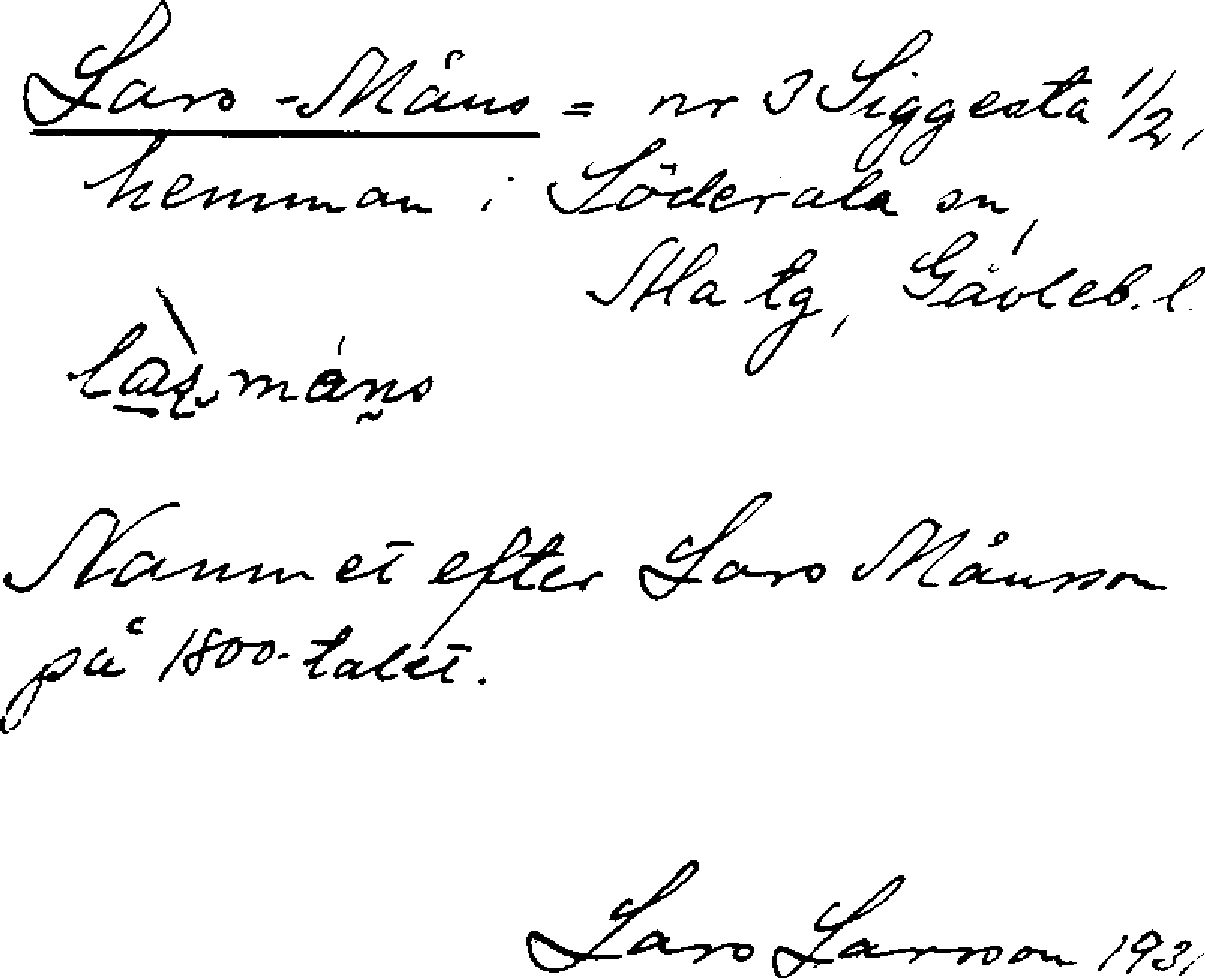 Lars-Måns = nr 3 Siggesta 1/2,
hemman i Söderala sn,
Ala tg, Gävleb. l.
Namnet efter Lars Månsson
på 1800-talet.
Lars Larsson 1931